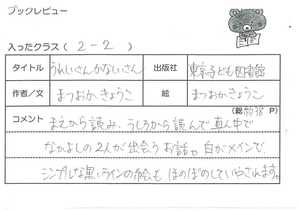 ブックレビュー
入ったクラス(2-2)
タイトル うれしいさんかなしいさん 出版社 東京子ども図書館
作者/文 まつおかきょうこ 絵 まつおかきょうこ
コメント (総 P)
まえから読み、うしろから読んで真ん中で
なかよしの2人が出会うお話。白がメインで
シンプルな黒いラインの絵も ほのぼのしていやされます。